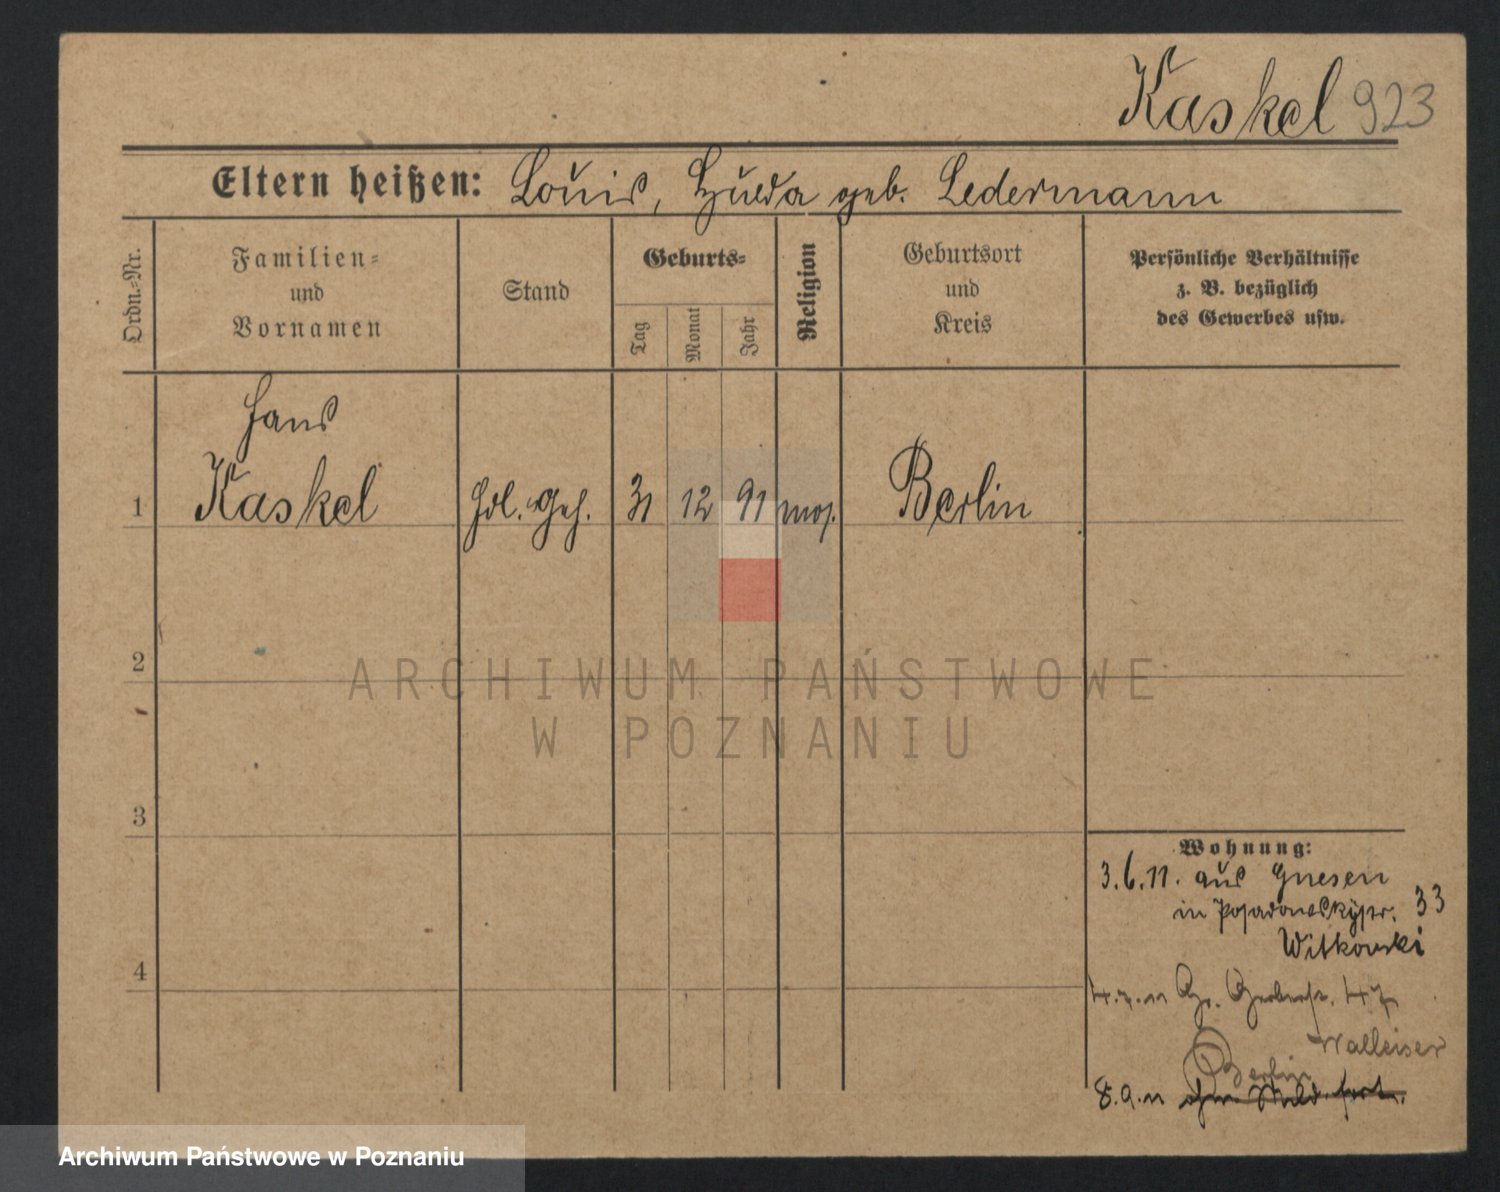 Kaskel 923
Eltern heißen: Louis, Hulda geb. Ledermann
Ordn.-Nr.
Familien-
und
Vornamen
Stand
Geburts-
Tag
Monat
Jahr
Religion
Geburtsort
und
Kreis
Persönliche Verhältnisse
z. B. bezüglich
des Gewerbes usw.
Hans
1 Kaskel Hdl. Geh. 31 12 91 mos. Berlin
2
3
4
Wohnung:
3.6.11. aus Gnesen
in Posadowskystr. 33
Witkowski
4.7.11 Gr. Gerberstr. 47
Walleiser
Berlin
8.9.11 ohne Meld. fort.
ARCHIWUM PAŃSTWOWE
W POZNANIU
Archiwum Państwowe w Poznaniu